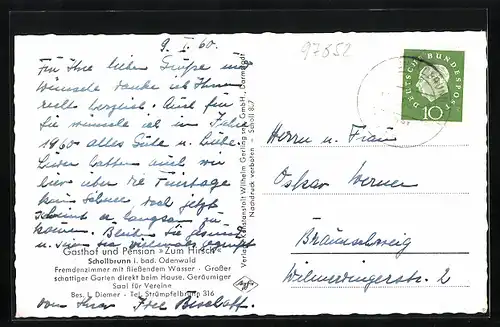 9. I. 60.
97852
Für Ihre lieben Grüße und
Wünsche danke ich Ihnen
recht herzlich. Auch für
Sie wünsche ich im Jahre
1960 alles Gute u. Liebe.
Leider hatten auch wir
hier über die Feiertage
kein Schnee, doch jetzt
scheint er langsam zu
kommen. Bleiben Sie gesund
u. seien Sie vielmals gegrüßt
von Ihrer
Gasthof und Pension »Zum Hirsch«
Schollbrunn i. bad. Odenwald
Fremdenzimmer mit fließendem Wasser · Großer
schattiger Garten direkt beim Hause. Geräumiger
Saal für Vereine
Bes. L. Diemer · Tel. Strümpfelbrunn 316
Verlag Kunstanstalt Wilhelm Gerling sen. GmbH., Darmstadt
Nachdruck verboten
Agfa
DEUTSCHE BUNDESPOST
10
Herrn u. Frau
Oskar Werner
Braunschweig